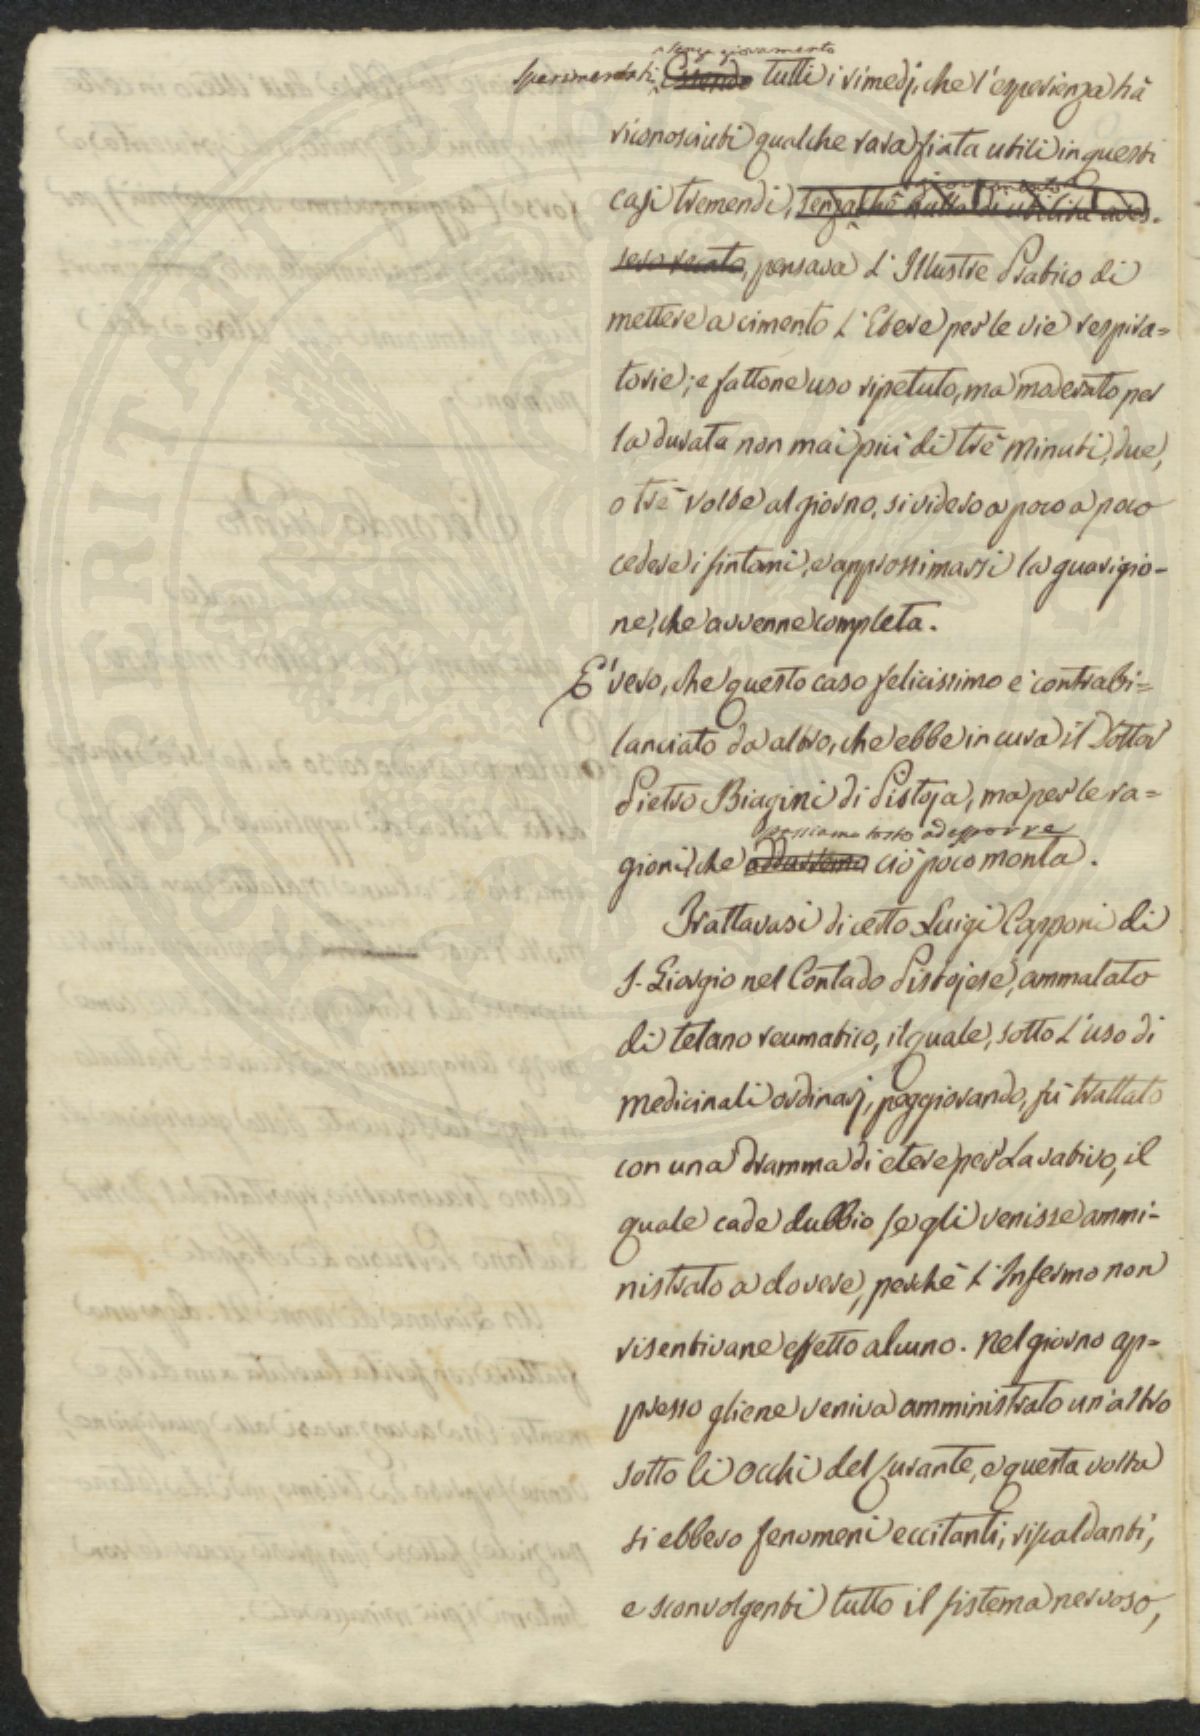 senza giovamento
Sperimentati, Essendo tutti i rimedj, che l'esperienza hà
riconosciuti qualche rara fiata utili in questi
casi tremendi, senzachè frutto di utilità aves-
sero recato, pensava L'Illustre Pratico di
mettere a cimento L'Etere per le vie respira=
torie; e fattone uso ripetuto, ma moderato per
la durata non mai più di trè minuti, due,
o trè volte al giorno, si videro a poco a poco
cedere i sintomi, e approssimarsi la guarigio-
ne, che avvenne completa.
E' vero, che questo caso felicissimo è contrabi=
lanciato da altro, che ebbe in cura il Dottor
Pietro Biagini di Pistoja, ma per le ra=
passiamo tosto ad esporre
gioni, che ciò poco monta.
Trattavasi di certo Luigi Capponi di
S. Giorgio nel Contado Pistojese, ammalato
di tetano reumatico, il quale, sotto L'uso di
medicinali ordinarj, peggiorando, fù trattato
con una dramma di etere per Lavativo, il
quale cade dubbio se gli venisse ammi-
nistrato a dovere, perchè L'Infermo non
risentivane effetto alcuno. Nel giorno ap-
presso gliene veniva amministrato un'altro
sotto li occhi del Curante, e questa volta
si ebbero fenomeni eccitanti, riscaldanti,
e sconvolgenti tutto il sistema nervoso,